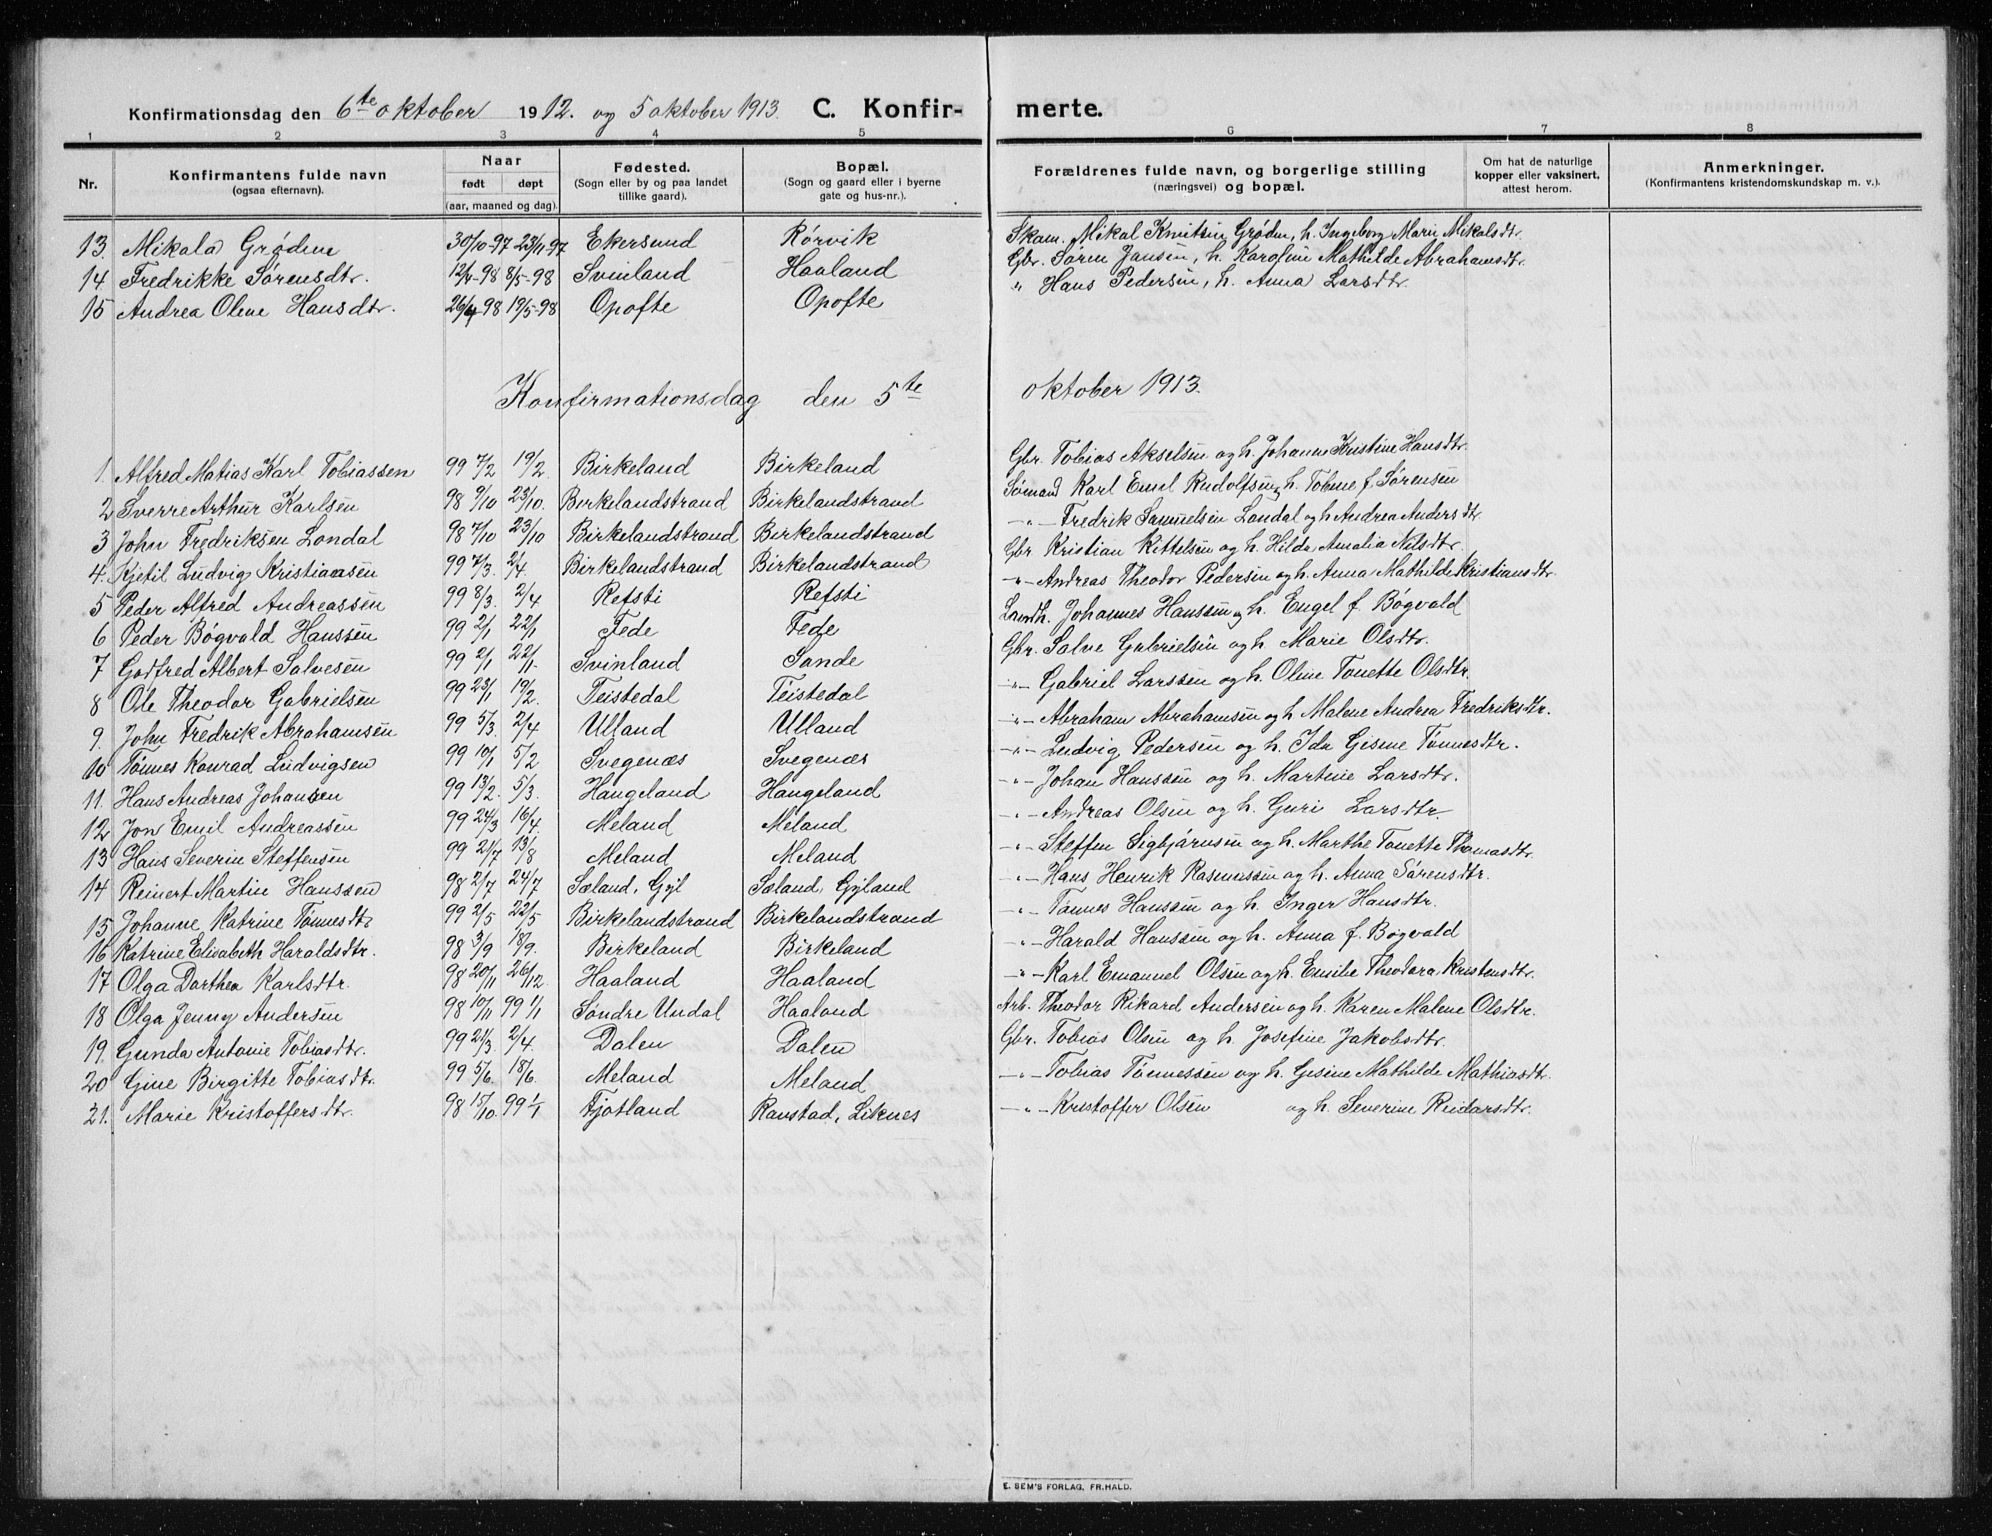 Konfirmationsdag den 6te oktober 1912. og 5 oktober 1913. C. Konfirmerte.
1 2 3 4 5 6 7 8
Nr. Konfirmantens fulde navn (ogsaa efternavn). Naar født døpt (aar, maaned og dag). Fødested. (Sogn eller by og paa landet tillike gaard). Bopæl. (Sogn og gaard eller i byerne gate og hus-nr.). Forældrenes fulde navn, og borgerlige stilling (næringsvei) og bopæl. Om hat de naturlige kopper eller vaksinert, attest herom. Anmerkninger. (Konfirmantens kristendomskundskap m. v.).
13. Mikala Grødem 30/10-97 23/11-97 Ekersund Rørvik Skom. Mikal Knutsen Grødem, h. Ingeborg Marie Mikalsdtr.
14 Fredrikke Sørensdtr. 12/4-98 8/5-98 Svinland Haaland Gbr. Søren Jansen, h. Karoline Mathilde Abrahamsdtr.
15 Andrea Olene Hansdtr. 26/4-98 19/5-98 Opofte Opofte " Hans Pedersen, h. Anna Larsdtr.
Konfirmationsdag den 5te oktober 1913.
1. Alfred Matias Karl Tobiassen 99 7/2 19/2. Birkeland Birkeland Gbr. Tobias Akselsen og h. Johanne Kristine Hansdtr.
2 Sverre Arthur Karlsen 98 9/10 23/10. Birkelandstrand Birkelandstrand Sømand Karl Emil Rudolfsen og h. Tobine f. Sørensen
3 John Fredriksen Londal 98 7/10 23/10 Birkelandstrand Birkelandstrand -"- Fredrik Samuelsen Londal og h Andrea Andersdtr.
4. Kjetil Ludvig Kristiansen 99 7/3. 2/4 Birkelandstrand Birkelandstrand Gbr Kristian Kittelsen og h. Hilda Amalia Nilsdtr.
5 Peder Alfred Andreassen 99 8/3. 2/4 Refsti Refsti -"- Andreas Theodor Pedersen og h. Anna Mathilde Kristiansdtr.
6 Peder Bøgvald Hanssen 99 2/1 22/1 Fede Fede Landh. Johannes Hanssen og h. Engel f. Bøgvald
7 Godfred Albert Salvesen 99 2/1 22/1. Svinland Sande Gbr. Salve Gabrielsen og h. Marie Olsdtr.
8 Ole Theodor Gabrielsen 99 23/1 19/2. Teistedal Teistedal -"- Gabriel Larssen og h. Oline Tonette Olsdtr.
9. John Fredrik Abrahamsen 99 5/3. 2/4 Ulland Ulland -"- Abraham Abrahamsen og h Malene Andrea Fredriksdtr.
10 Tønnes Konrad Ludvigsen 99 10/1 5/2 Svegenæs Svegenæs -"- Ludvig Pedersen og h. Ida Gisine Tønnesdtr.
11. Hans Andreas Johansen 99 13/2. 5/3. Haugeland Haugeland -"- Johan Hanssen og h. Martine Larsdtr.
12 Jon Emil Andreassen 99 24/3 16/4. Meland Meland -"- Andreas Olsen og h. Guri Larsdtr.
13 Hans Severin Steffensen 99 21/7 13/8 Meland Meland -"- Steffen Sigbjørnsen og h. Marthe Tonette Thomasdtr.
14 Reinert Martin Hanssen 98 2/7 24/7 Sæland, Gyl Sæland, Gyland -"- Hans Henrik Rasmussen og h. Anna Sørensdtr.
15. Johanne Katrine Tønnesdtr 99 2/5 22/5 Birkelandstrand Birkelandstrand -"- Tønnes Hanssen og h. Inger Hansdtr.
16 Katrine Elisabeth Haraldsdtr. 98 3/9 18/9. Birkeland Birkeland -"- Harald Hanssen og h. Anna f. Bøgvald
17 Olga Dorthea Karlsdtr. 98 20/11 26/12. Haaland Haaland -"- Karl Emanuel Olsen og h. Emilie Theodora Kristensdtr.
18 Olga Jenny Andersen 98 10/11 99 1/1 Søndre Undal Haaland Arb. Theodor Rikard Andersen og h. Karen Malene Olsdtr.
19. Gunda Antonie Tobiasdtr. 99 21/3. 2/4. Dalen Dalen Gbr. Tobias Olsen og h. Josefine Jakobsdtr.
20 Gine Birgitte Tobiasdtr. 99 5/6. 18/6 Meland Meland -"- Tobias Tønnessen og h. Gesine Mathilde Mathiasdtr.
21. Marie Kristoffersdtr. 98 15/10. 99 1/1 Fjotland Ranstad, Liknes -"- Kristoffer Olsen og h. Severine Reidarsdtr.
E. SEM'S FORLAG, FR.HALD.